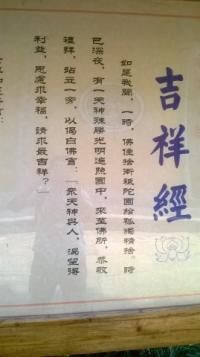 吉祥經
如是我聞，一時，佛住舍衛祇陀園給孤獨精舍。時
已深夜，有一天神殊勝光明遍照園中，來至佛所，恭敬
禮拜，站立一旁，以偈白佛言：「眾天神與人，渴望得
利益，思慮求幸福，請示最吉祥？」